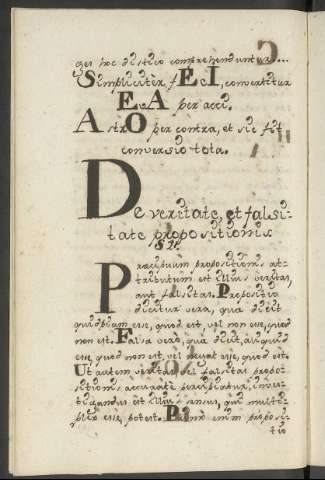 ges hoc disticо comprehenduntur...
Simpliciter fEcI, convertitur
EvA per acci.
AstrO per contra, et sic fit
conversio tota.
De veritate, et falsi-
tate propositionis
Praecipuum propositionis at-
tributum est illius veritas,
aut falsitas. Propositio
dicitur vera, qua dicit
quidpiam esse, quod est, vel non esse, quod
non est. Falsa vero, qua dicit, aliquid
esse, quod non est, vel negat esse, quod est.
Ut autem veritas, vel falsitas propo-
sitionis accurate percipiatur, inves-
tigandus est illius sensus, qui multi-
plex esse potest. Primo enim proposi-
tio